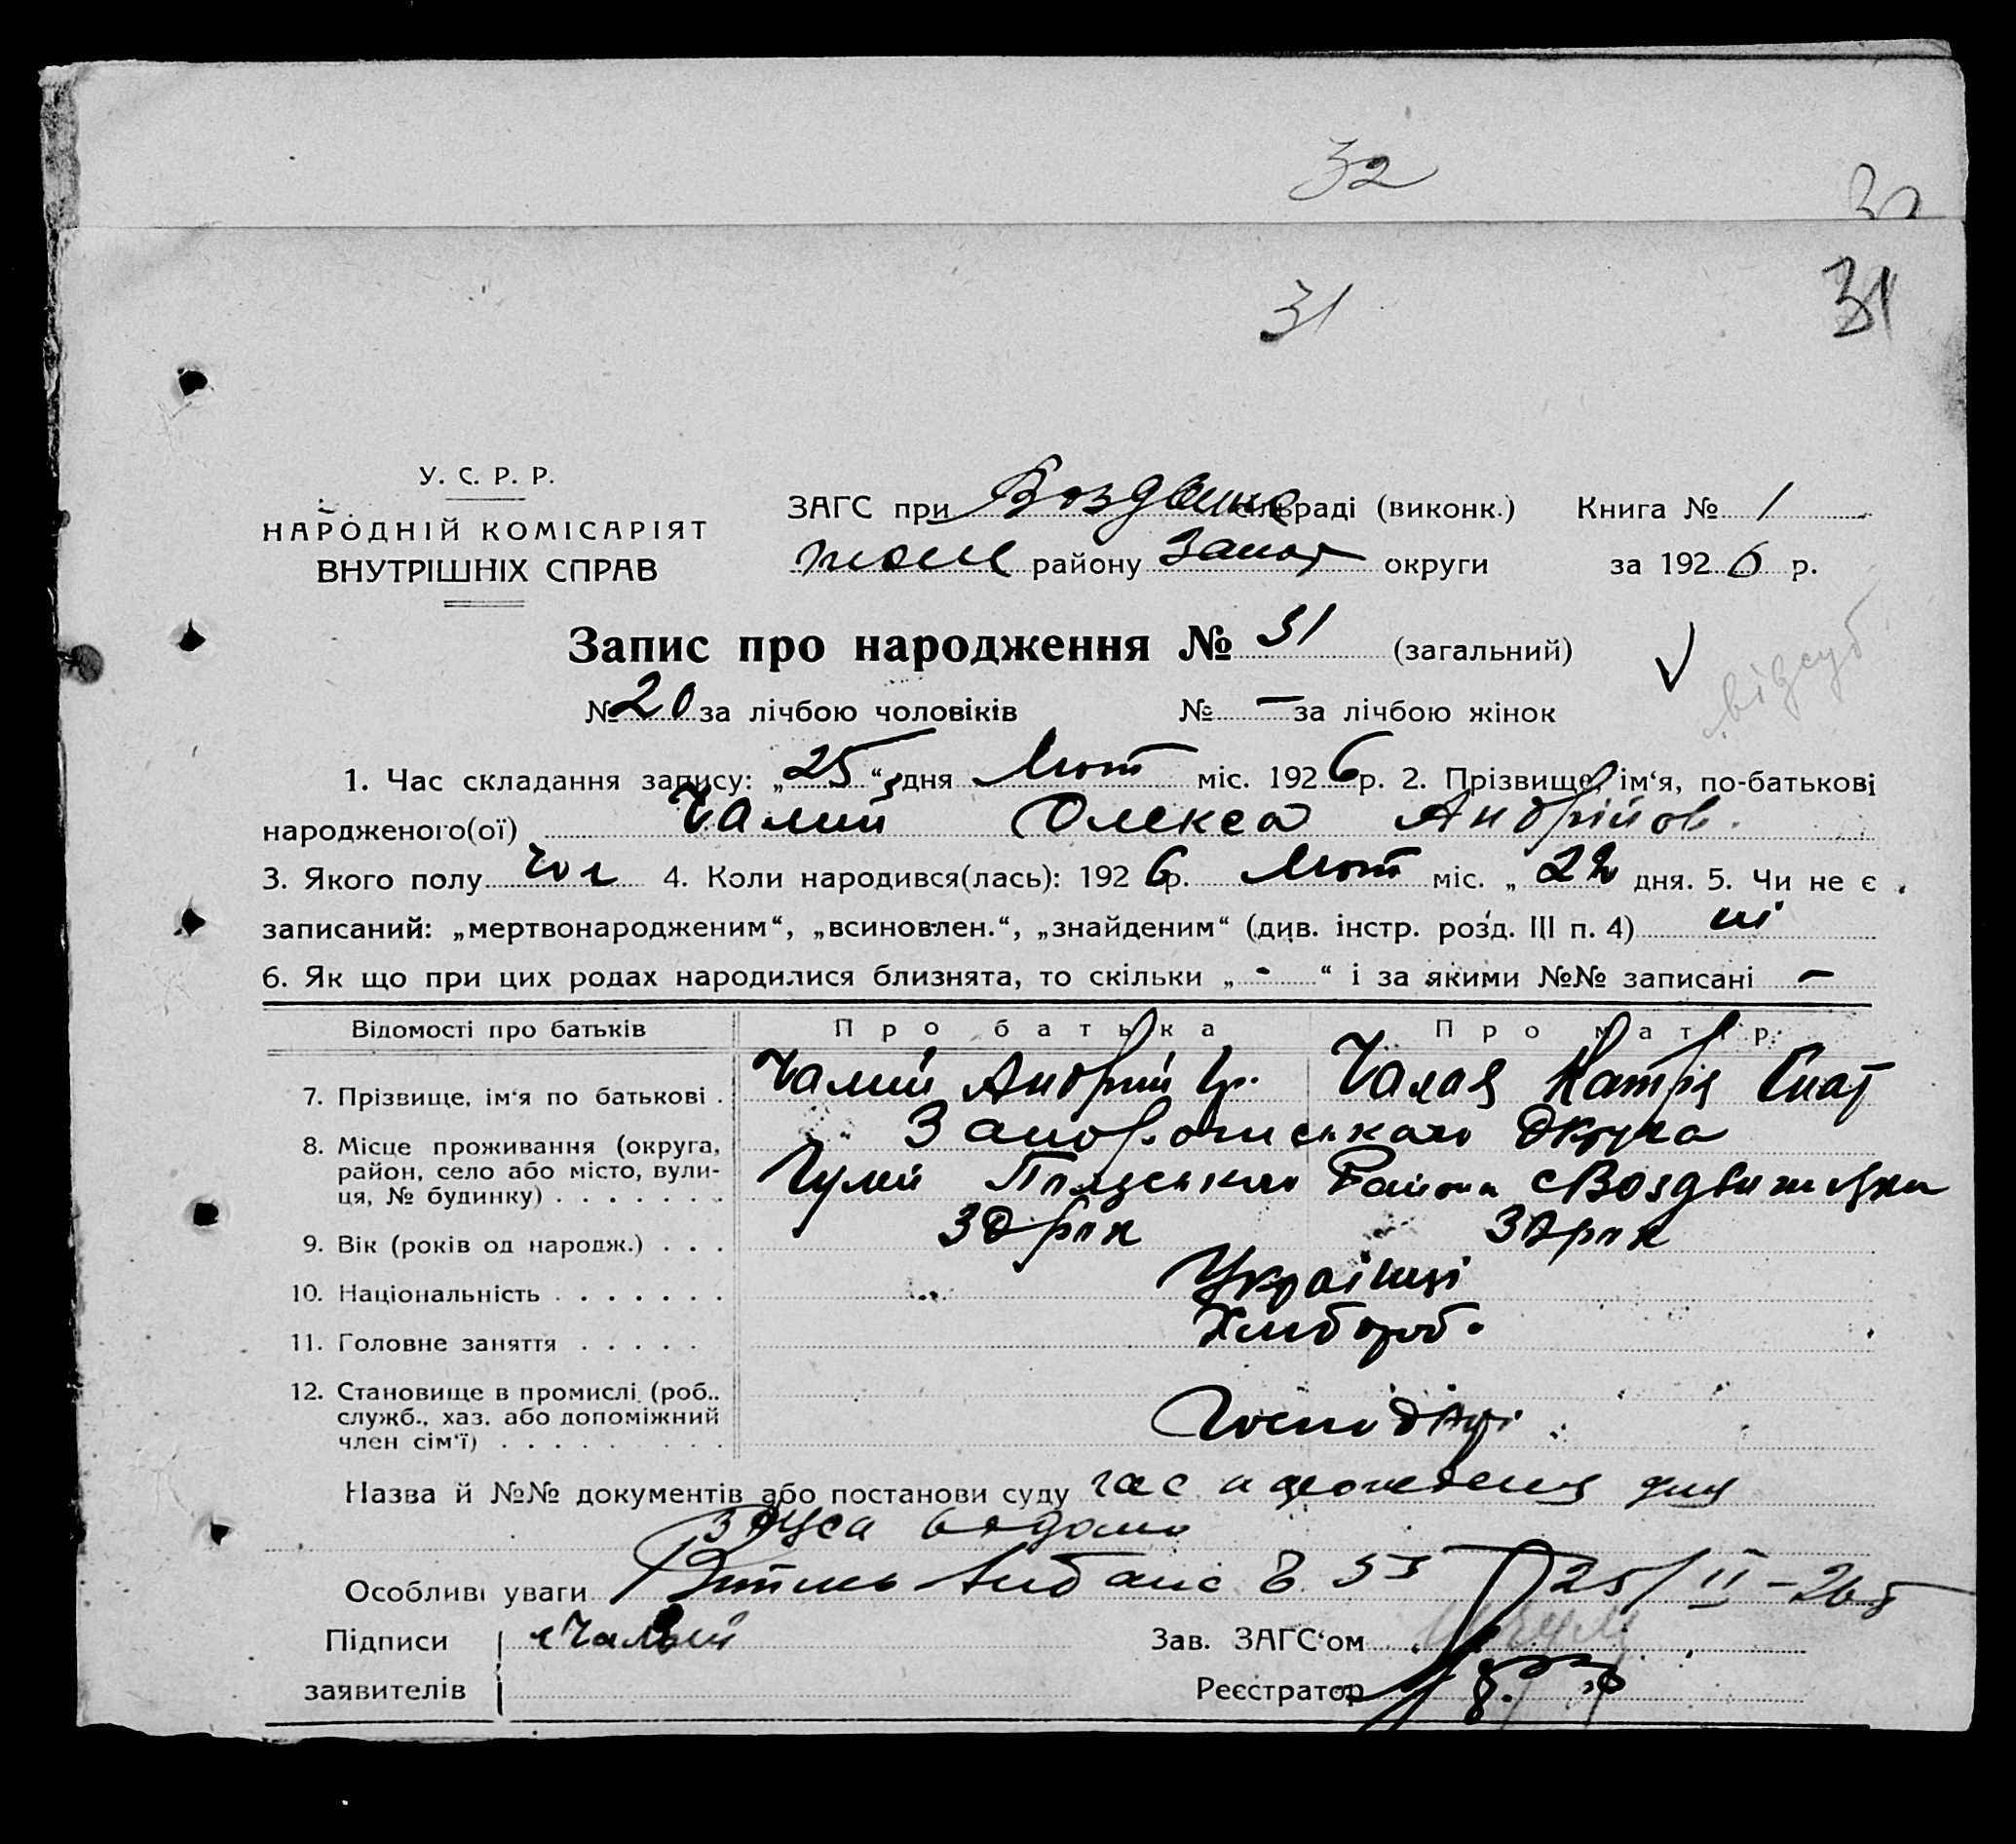 32
32
31
31
У. С. Р. Р.
НАРОДНІЙ КОМІСАРІЯТ
ВНУТРІШНІХ СПРАВ
ЗАГС при Воздвиж сільраді (виконк.) Книга № 1
району Запор округи за 1926 р.
Запис про народження № 31 (загальний)
№ 20 за лічбою чоловіків № — за лічбою жінок
відсут
1. Час складання запису: „25“ дня Лют міс. 1926 р. 2. Прізвище, ім‘я, по-батькові
народженого(ої) Чалий Олекса Андрійов.
3. Якого полу чол 4. Коли народився(лась): 1926 р. Лют міс. „22 дня. 5. Чи не є
записаний: „мертвонародженим“, „всиновлен.“, „знайденим“ (див. інстр. розд. III п. 4) ні
6. Як що при цих родах народилися близнята, то скільки „-“ і за якими №№ записані —
Відомості про батьків Про батька Про матір
7. Прізвище, ім‘я по батькові . Чалий Андрій Чалая Катрія Гнат
8. Місце проживання (округа, район, село або місто, вулиця, № будинку) . . . . . . . Запорожського Округа
Гуляй Района с Воздвиженка
9. Вік (років од народж.) . . . 30 рік 30 рік
10. Національність . . . . . . . Українці
11. Головне заняття . . . . . Хлибороб
12. Становище в промислі (роб., служб., хаз. або допоміжний член сім‘ї) . . . . . . . . . Господарі
Назва й №№ документів або постанови суду
Особливі уваги 25/II-26
Підписи Чалий Зав. ЗАГС‘ом
заявителів Реєстратор